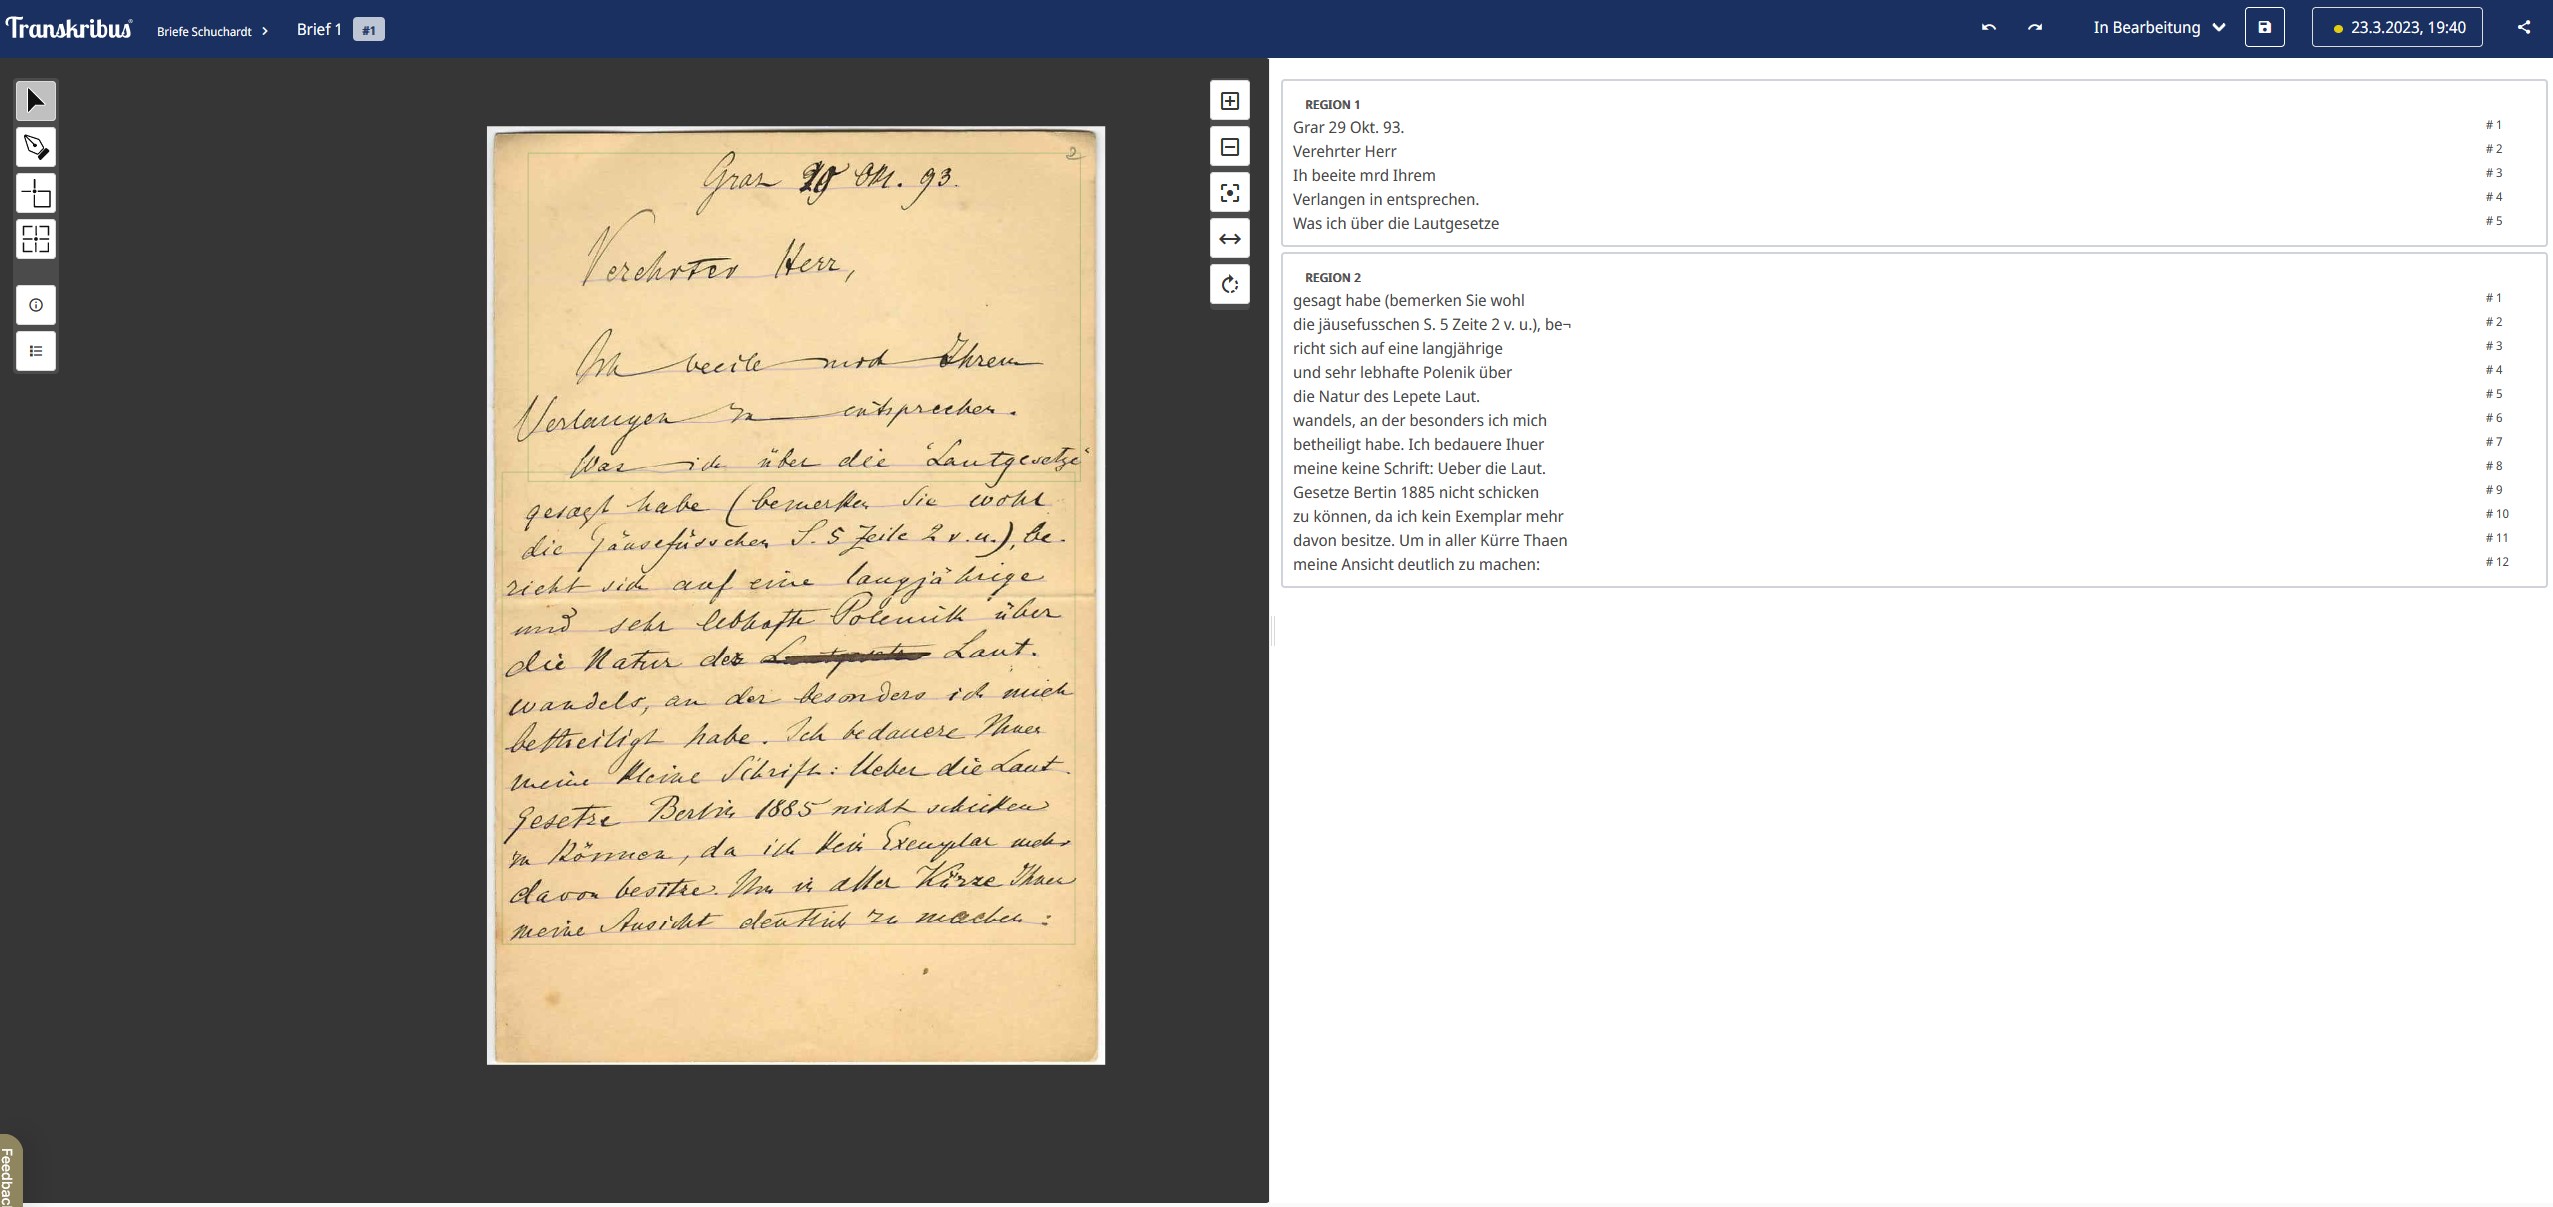 Transkribus
Briefe Schuchardt
Brief 1
#1
In Bearbeitung
23.3.2023, 19:40
2
Graz 29 Okt. 93.
Verehrter Herr,
Ich beeile mich Ihrem
Verlangen zu entsprechen.
Was ich über die "Lautgesetze"
gesagt habe (bemerken Sie wohl
die Gänsefüsschen S. 5 Zeile 2 v. u.), be-
zieht sich auf eine langjährige
und sehr lebhafte Polemik über
die Natur des Laut-
wandels, an der besonders ich mich
betheiligt habe. Ich bedauere Ihnen
meine kleine Schrift: Ueber die Laut-
gesetze Berlin 1885 nicht schicken
zu können, da ich kein Exemplar mehr
davon besitze. Um in aller Kürze Ihnen
meine Ansicht deutlich zu machen:
REGION 1
Grar 29 Okt. 93. #1
Verehrter Herr #2
Ih beeite mrd Ihrem #3
Verlangen in entsprechen. #4
Was ich über die Lautgesetze #5
REGION 2
gesagt habe (bemerken Sie wohl #1
die jäusefusschen S. 5 Zeite 2 v. u.), be¬ #2
richt sich auf eine langjährige #3
und sehr lebhafte Polenik über #4
die Natur des Lepete Laut. #5
wandels, an der besonders ich mich #6
betheiligt habe. Ich bedauere Ihuer #7
meine keine Schrift: Ueber die Laut. #8
Gesetze Bertin 1885 nicht schicken #9
zu können, da ich kein Exemplar mehr #10
davon besitze. Um in aller Kürre Thaen #11
meine Ansicht deutlich zu machen: #12